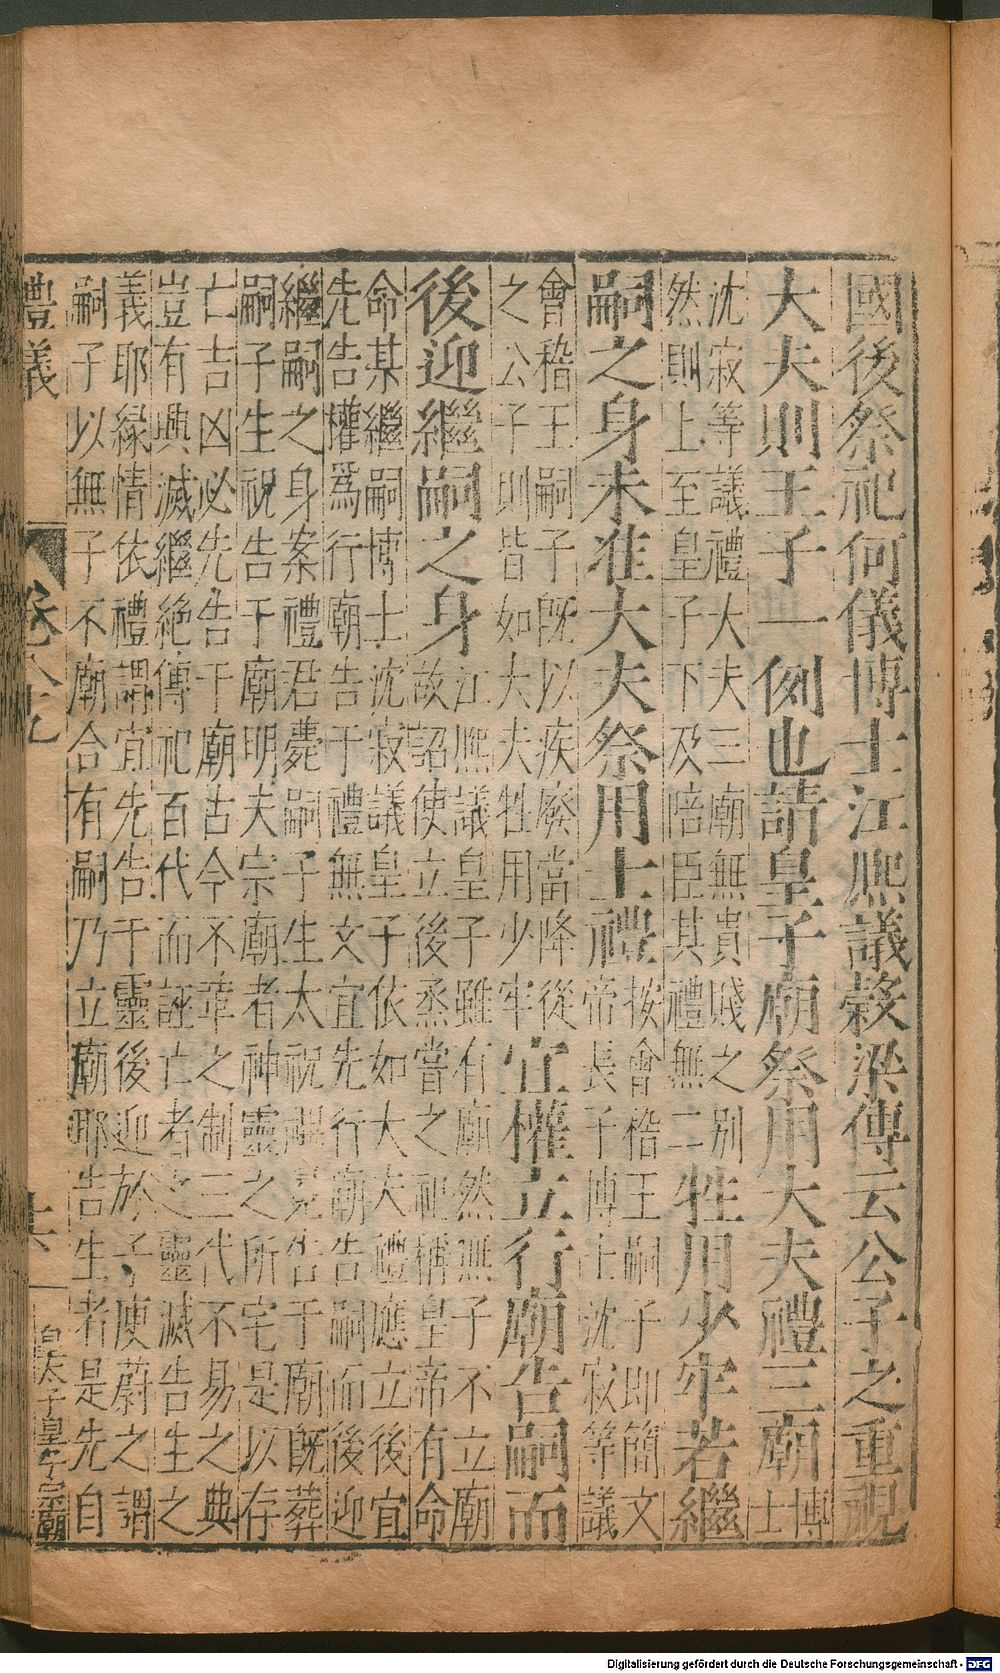 國後祭祀何儀博士江熈議榖梁傳云公子之重視
大夫則王子一例也請皇子廟祭用大夫禮三廟博士
沈寂等議禮大夫三廟無貴賤之别
然則上至皇子下及陪臣其禮無二牲用少牢若繼
嗣之身未准大夫祭用士禮按會稽王嗣子即簡文
帝長子博士沈寂等議
會稽王嗣子旣以疾廢當降從
之公子則皆如大夫牲用少牢宜權立行廟告嗣而
後迎繼嗣之身江熈議皇子雖有廟然無子不立廟
故詔使立後烝嘗之祀稱皇帝有命
命某繼嗣博士沈寂議皇子依如大夫禮應立後宜
先告權爲行廟告于禮無文宜先行廟告嗣而後迎
繼嗣之身案禮君薨嗣子生太祝禆冕告于廟旣葬
嗣子生祝告于廟明夫宗廟者神靈之所宅是以存
亡吉凶必先告于廟古今不革之制三代不易之典
豈有興滅繼絶傳祀百代而誣亡者之靈滅告生之
義耶縁情依禮謂宜先告于靈後迎於子庾蔚之謂
嗣子以無子不廟合有嗣乃立廟耶告生者是先自
禮議 卷八九 十六 皇太子皇子宗廟
Digitalisierung gefördert durch die Deutsche Forschungsgemeinschaft - DFG